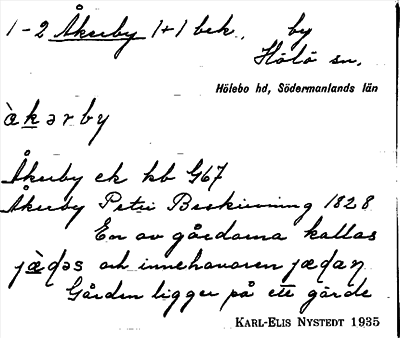 1-2 Åkerby 1+1 bek., by
Hölö sn.
Hölebo hd, Södermanlands län
àkərby
Åkerby ek kb G67
Åkerby Petri Beskrivning 1828
En av gårdarna kallas
jæ̀dəs och innehavaren jædaɳ
Gården ligger på ett gärde
KARL-ELIS NYSTEDT 1935